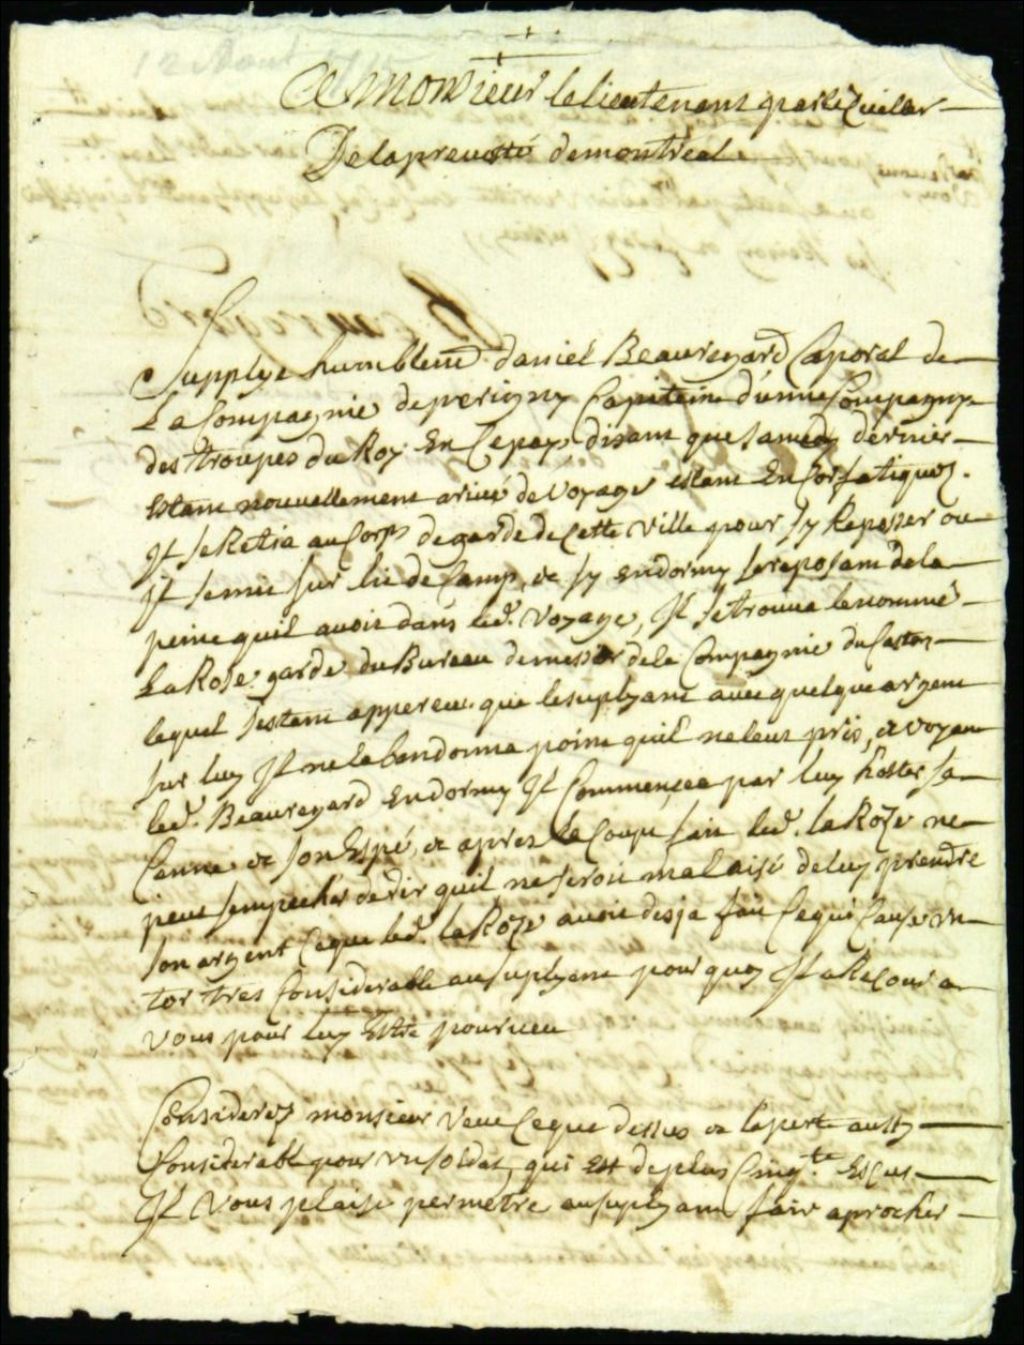 A monsieur le lieutenant gnal Civiller
De la prevosté de montreal
Supplye humblemt daniel Beauregard Caporal de
La Compagnie de perigny Capitaine d'unne Compagnye
des troupes du Roy En Ce pays, disant que samedy dernier
Estant nouvellement arivé de voyage estant En Cor fatiguez.
Il se Retira au Corps de garde de Cette ville pour sy Repozer ou
Il se mit sur lit de Camp, et sy endormy se reposant de la
peine quil avoit dans led. voyage, Il se trouva le nommé
La Roze garde du Bureau de messrs de la Compagnie du Castor
lequel sestant apperceu que le suplyant avec quelque argent
sur luy Il ne la bandonna point quil ne leut pris, et voyant
led. Beauregard Endormy Il Commencea par luy hoster sa
Canne et son Espé, et apres le Coup fait led. la Roze ne
peut sempecher de dir quil ne seroit mal aisé de luy prendre
son argent Ce que led. la Roze avoit desja fait Ce qui Cause un
tor tres Considerable au suplyant pourquoy Il a Recour a
vous pour luy Estre pourveu
Considerez monsieur veue Ce que dessus et la perte aussy
Considerable pour un soldat, qui Est de plus Cinqte Escus
Il vous plaise permetre au suplyant fair aprocher